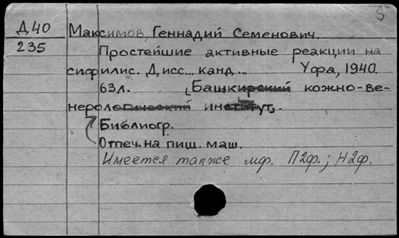 Д40 Максимов, Геннадий Семенович.
235 Простейшие активные реакции на
сифилис. Дисс... канд... Уфа, 1940.
63л. (Башкирский кожно-ве-
нерологический институт).
Библиогр.
Отпеч. на пиш. маш.
Имеется также мф. П2ф.; Н2ф.